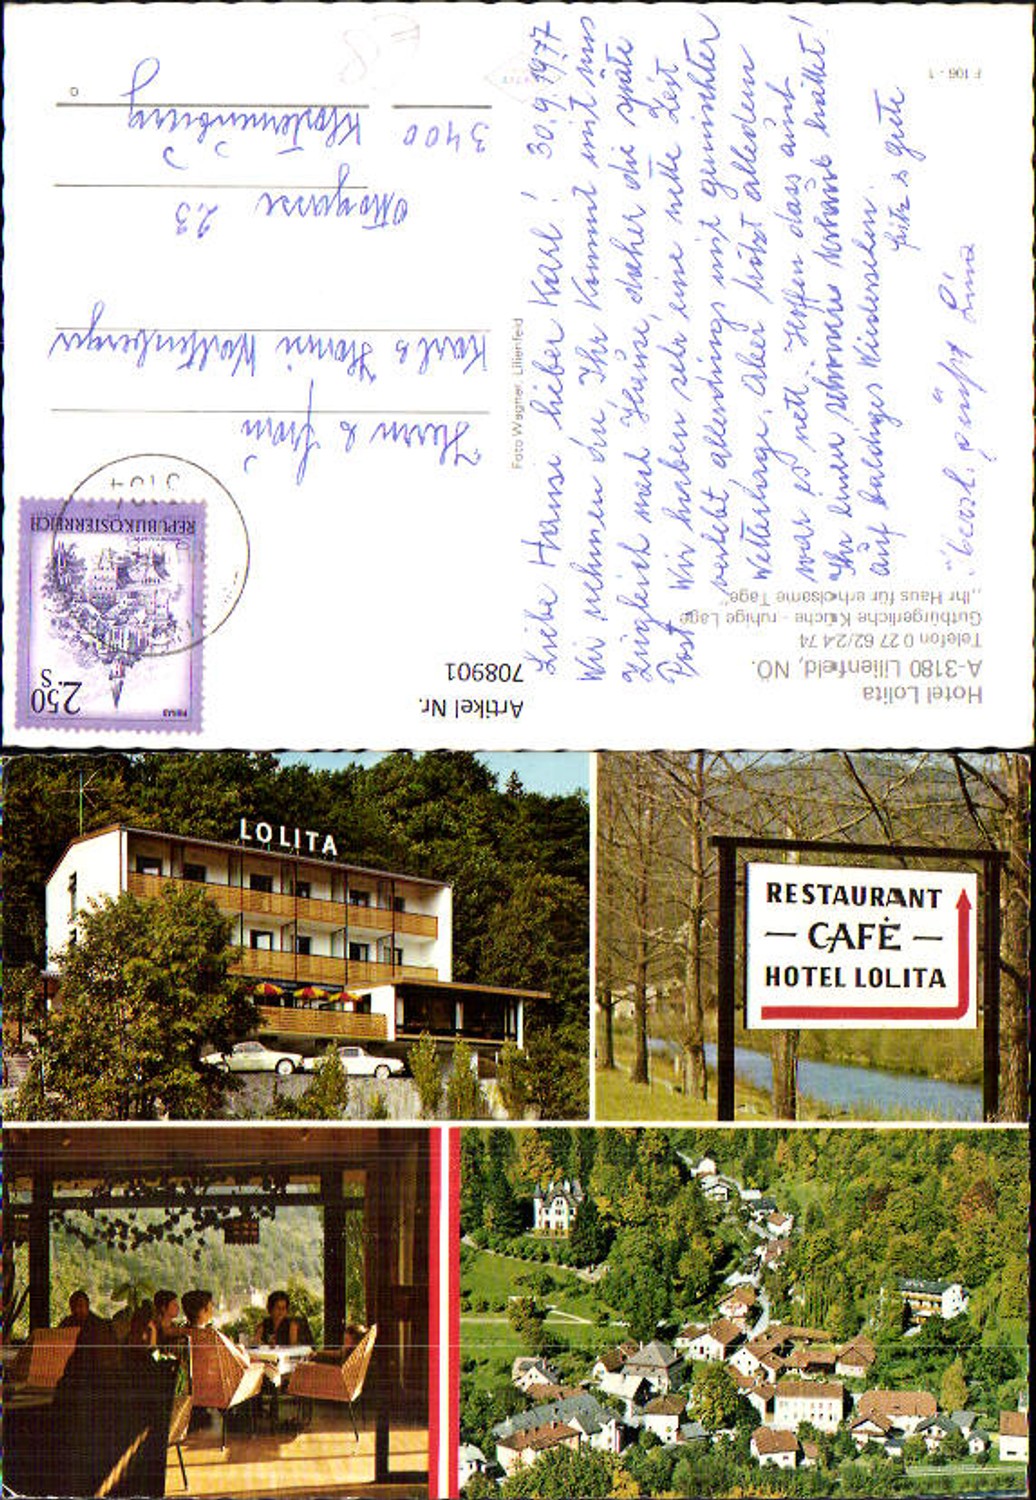 Hotel Lolita
A-3180 Lilienfeld, NÖ.
Telefon 0 27 62/24 74
Gutbürgerliche Küche - ruhige Lage
„Ihr Haus für erholsame Tage"
F 106 - 1
Foto Wagner, Lilienfeld
Artikel Nr.
708901
REPUBLIK ÖSTERREICH
2.50
S
Herrn & Frau
Karl & Hanni
Ottogasse 23
3400 Klosterneuburg
30.9.1977
Liebe Hanni lieber Karl!
Wir nehmen an Ihr kommt mit uns
zugleich nach Hause, daher die späte
Post. Wir haben sehr eine nette Zeit
verlebt allerdings mit gemischter
Wetterlage. Aber trotz alledem
war es nett. Hoffen dass auch
Ihr einen schönen Urlaub hattet!
Auf baldiges Wiedersehen
LOLITA
RESTAURANT
— CAFÉ —
HOTEL LOLITA